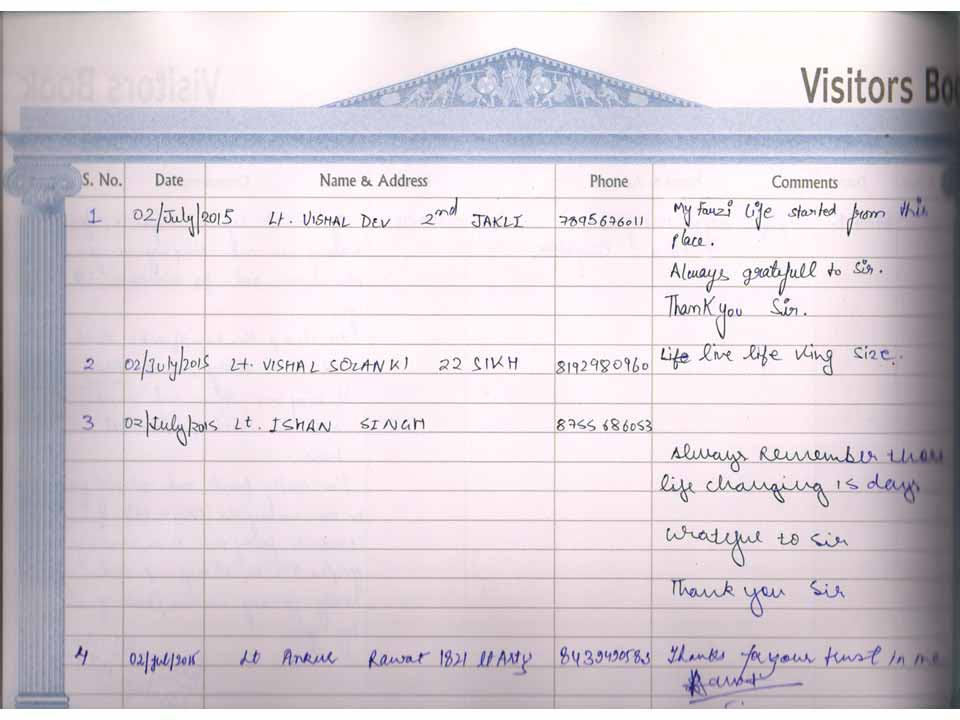 Visitors Bo
S. No. Date Name & Address Phone Comments
1 02/July/2015 Lt. VISHAL DEV 2nd JAKLI 7895676011 My Fauzi life started from this
place.
Always gratefull to Sir.
Thank you Sir.
2 02/July/2015 Lt. VISHAL SOLANKI 22 SIKH 8192980960 Life live life king size.
3 02/July/2015 Lt. ISHAN SINGH 8755686053
Always Remember
life changing 15 days
Grateful to Sir
Thank you Sir
4 02/Jul/2015 Lt Ankur Rawat 1821 Lt Arty Thanks for your trust in me
Rawat